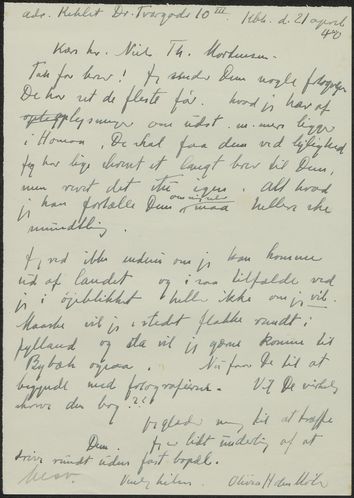 adr. Dr. Tværgade 10 III. Kbh. d. 21 april
40
Kære hr. Niels Th. Mortensen.
Tak for brev! Jeg sender Dem nogle fotografier
De har set de fleste før. hvad jeg har af
oplysninger om udst. m.mere ligger
i Homan, De skal faa dem ved lejlighed
Jeg har lige skrevet et langt brev til Dem,
men revet det itu igen. Alt hvad
jeg kan fortælle Dem maa hellere ske
mundtlig.
Jeg ved ikke endnu om jeg kan komme
ud af landet og i saa tilfælde ved
jeg i øjeblikket heller ikke om jeg vil.
Maaske vil jeg i stedet flakke rundt i
jylland og saa vil jeg gerne komme til
Bybæk ogsaa. Nu fare De til at
begynde med fotografierne. Vil De virkelig
skrive den bog?!!
Jeg glæder mig til at træffe
Dem. Jeg er lidt underlig af at
drive rundt uden fast bopæl.
Venlig hilsen. Olivia Holm Møller